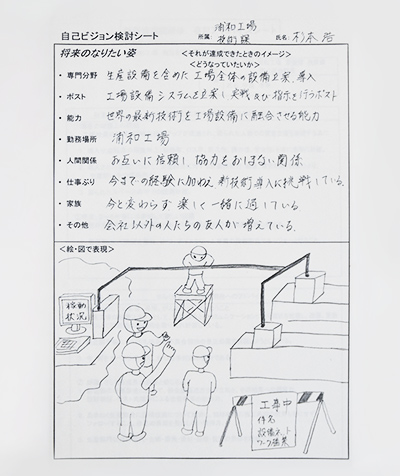 自己ビジョン検討シート 所属 浦和工場 技術課 氏名
将来のなりたい姿 <それが達成できたときのイメージ>
<どうなっていたいか>
・専門分野 生産設備を含めた工場全体の設備立案、導入
・ポスト 工場設備システムを立案し実戦及び指示を行うポスト
・能力 世界の最新技術を工場設備に融合させる能力
・勤務場所 浦和工場
・人間関係 お互いに信頼し、協力をおしまない関係
・仕事ぶり 今までの経験に加わえ新技術導入に挑戦している。
・家族 今と変わらず楽しく一緒に過している
・その他 会社以外の人たちの友人が増えている。
<絵・図で表現>
稼動
状況
工事中
件名
設備ネット
ワーク